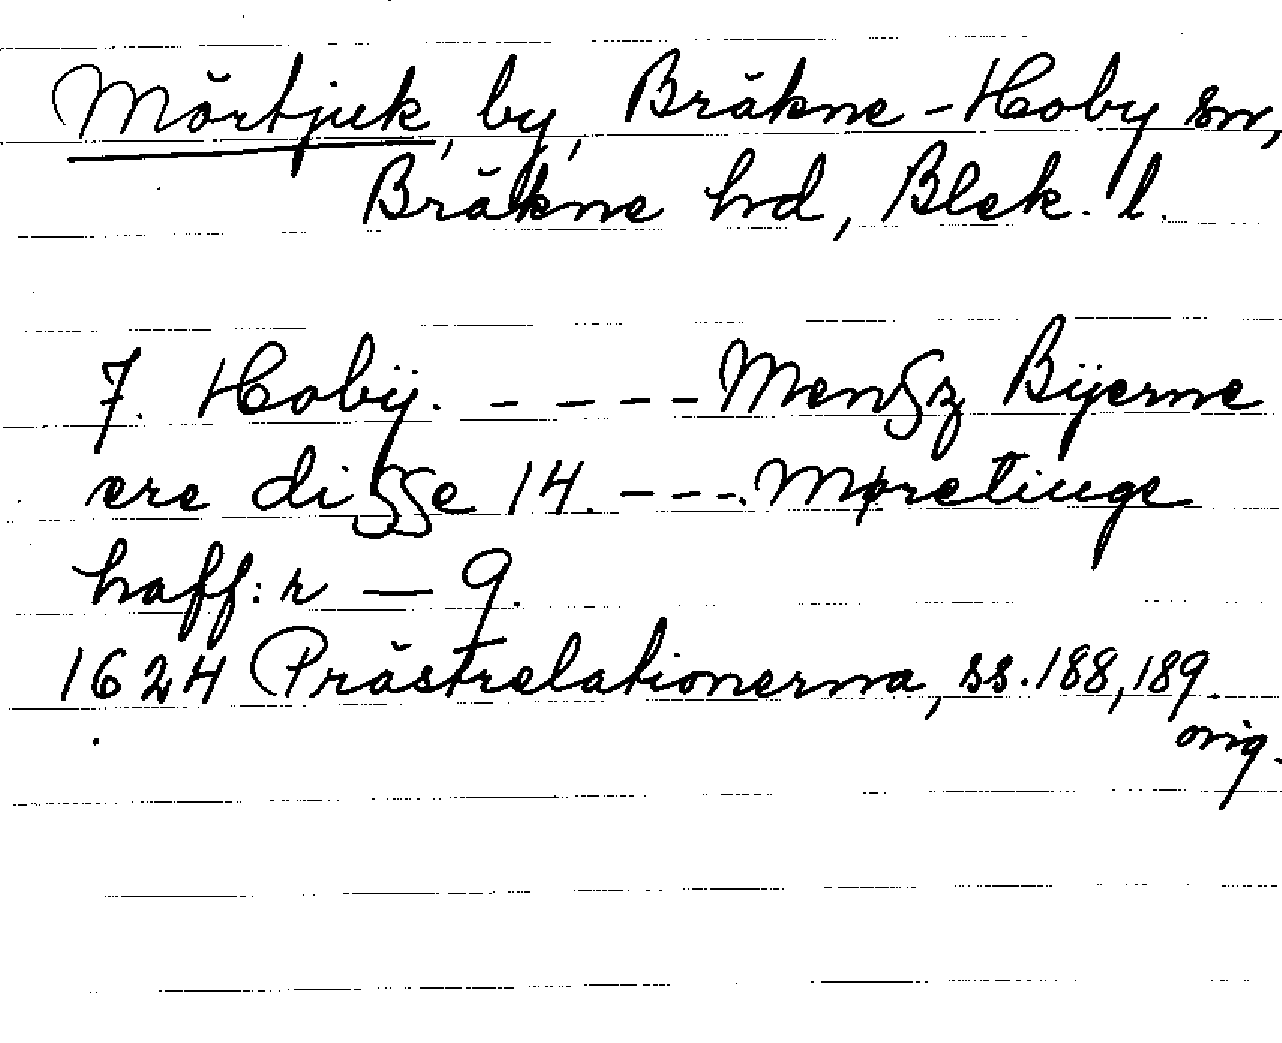 Mörtjuk, by, Bräkne-Hoby sn,
Bräkne hd, Blek. l.
7. Hobÿ. - - - - - Mengz Bÿerne
ere disse 14. - - -. Møretiuge
haff: r — 9.
1624 Prästrelationerna, ss. 188, 189.
orig.